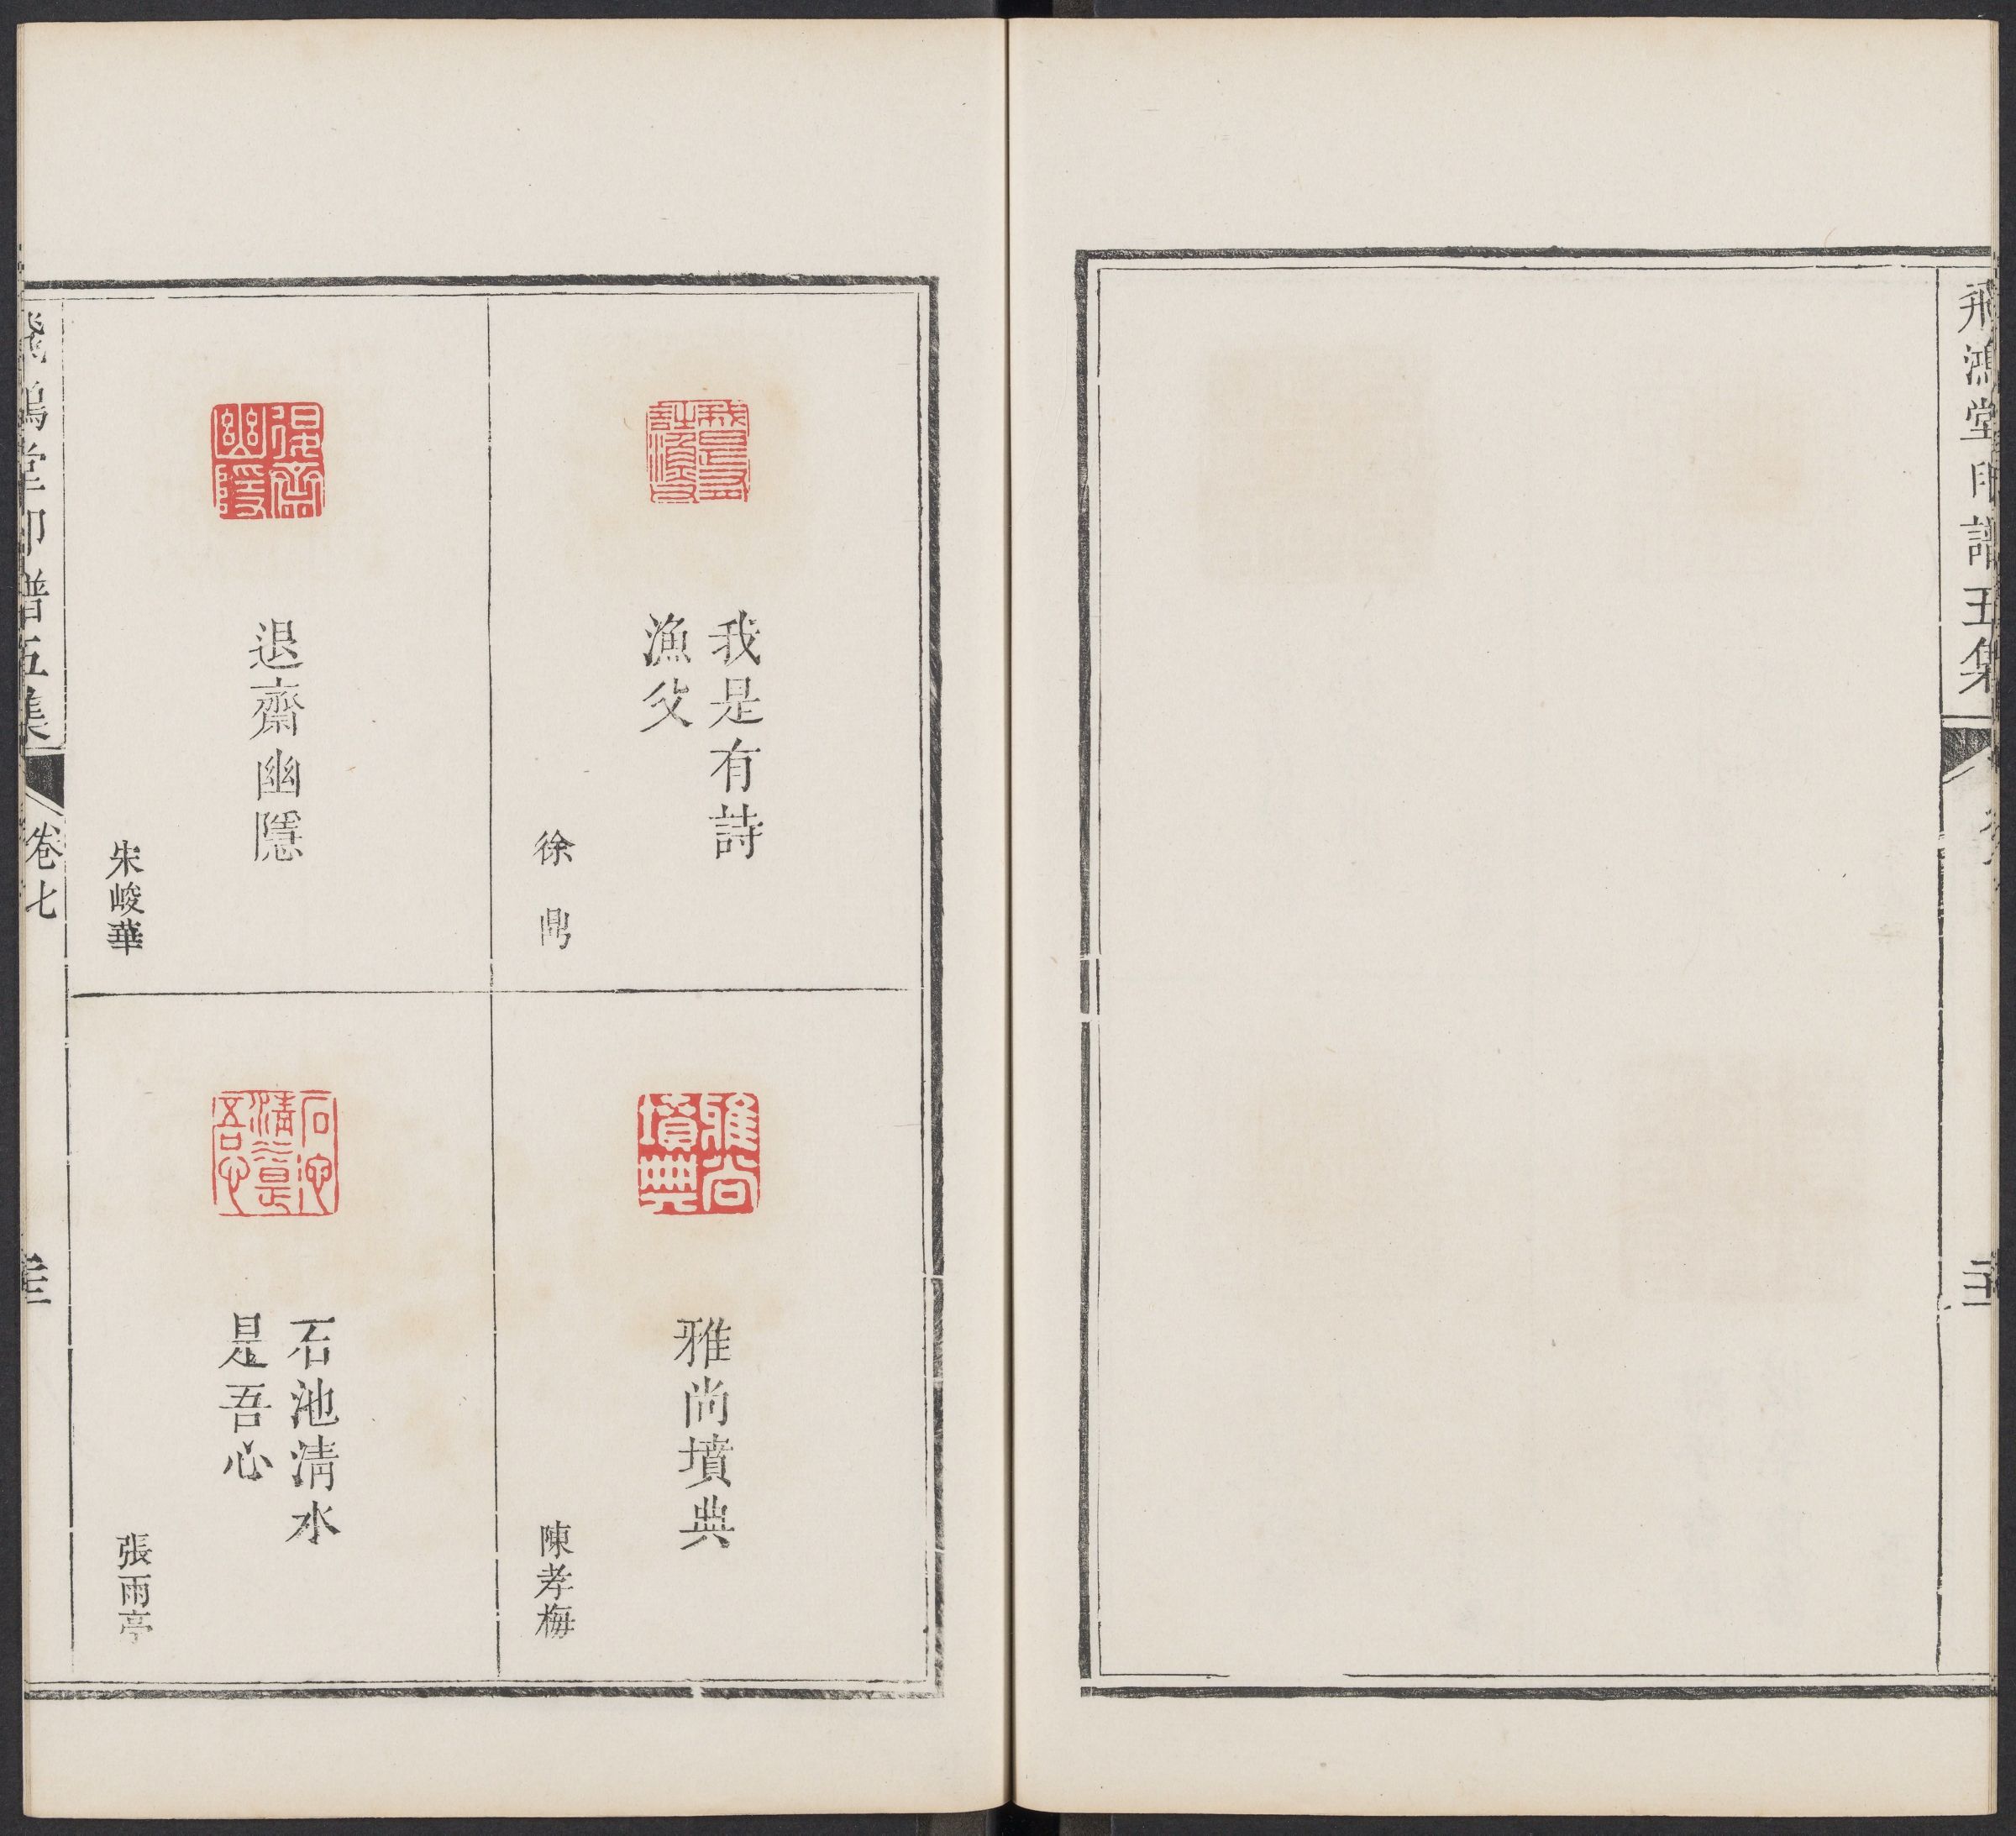 飛鴻堂印譜五集
我是有詩
漁父
徐鼎
雅尚墳典
陳孝梅
退齋幽隱
朱峻華
石池清水
是吾心
張雨亭
飛鴻堂印譜五集
卷七